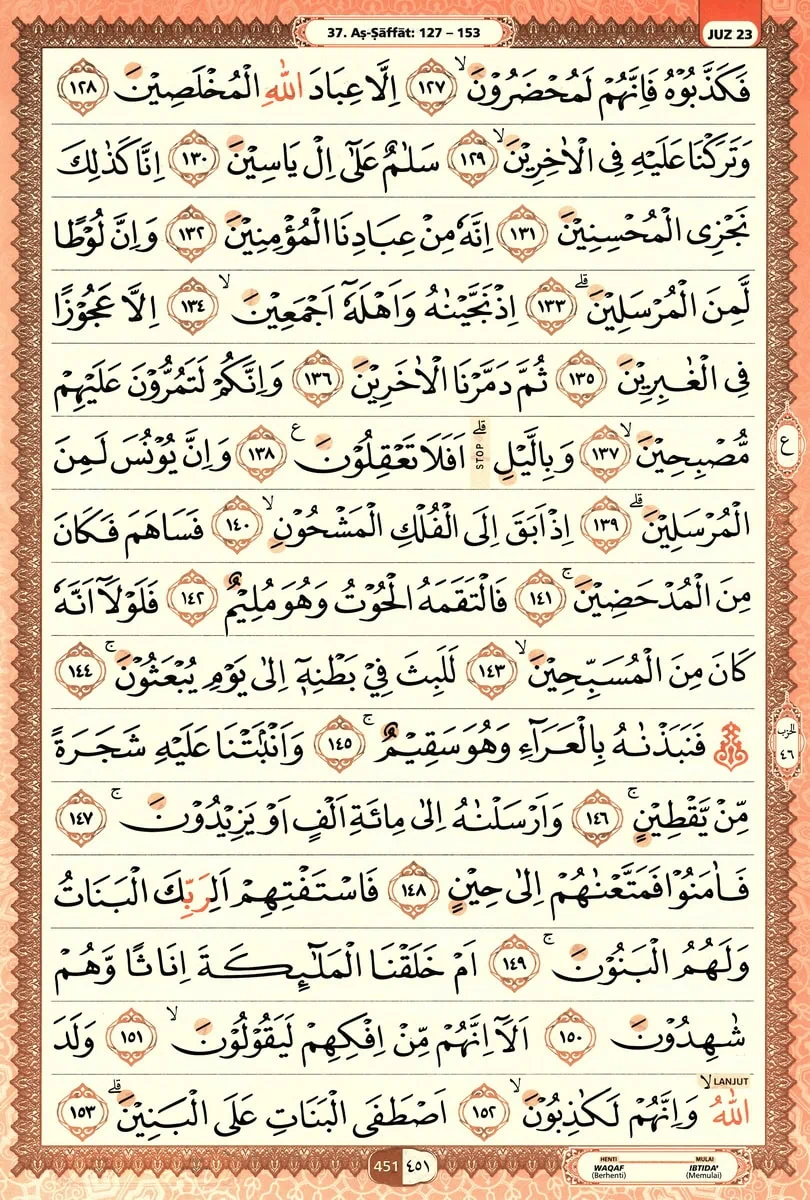 37. Aṣ-Ṣāffāt: 127 – 153
JUZ 23
فَكَذَّبُوْهُ فَاِنَّهُمْ لَمُحْضَرُوْنَۙ ١٢٧ اِلَّا عِبَادَ اللّٰهِ الْمُخْلَصِيْنَ ١٢٨
وَتَرَكْنَا عَلَيْهِ فِى الْاٰخِرِيْنَۙ ١٢٩ سَلٰمٌ عَلٰٓى اِلْ يَاسِيْنَ ١٣٠ اِنَّا كَذٰلِكَ
نَجْزِى الْمُحْسِنِيْنَ ١٣١ اِنَّهٗ مِنْ عِبَادِنَا الْمُؤْمِنِيْنَ ١٣٢ وَاِنَّ لُوْطًا
لَّمِنَ الْمُرْسَلِيْنَۗ ١٣٣ اِذْ نَجَّيْنٰهُ وَاَهْلَهٗٓ اَجْمَعِيْنَۙ ١٣٤ اِلَّا عَجُوْزًا
فِى الْغٰبِرِيْنَ ١٣٥ ثُمَّ دَمَّرْنَا الْاٰخَرِيْنَ ١٣٦ وَاِنَّكُمْ لَتَمُرُّوْنَ عَلَيْهِمْ
مُّصْبِحِيْنَۙ ١٣٧ وَبِالَّيْلِۗ STOP اَفَلَا تَعْقِلُوْنَ ࣖ ١٣٨ وَاِنَّ يُوْنُسَ لَمِنَ
ع
الْمُرْسَلِيْنَۗ ١٣٩ اِذْ اَبَقَ اِلَى الْفُلْكِ الْمَشْحُوْنِۙ ١٤٠ فَسَاهَمَ فَكَانَ
مِنَ الْمُدْحَضِيْنَۚ ١٤١ فَالْتَقَمَهُ الْحُوْتُ وَهُوَ مُلِيْمٌ ١٤٢ فَلَوْلَآ اَنَّهٗ
كَانَ مِنَ الْمُسَبِّحِيْنَۙ ١٤٣ لَلَبِثَ فِيْ بَطْنِهٖٓ اِلٰى يَوْمِ يُبْعَثُوْنَۚ ١٤٤
۞ فَنَبَذْنٰهُ بِالْعَرَاۤءِ وَهُوَ سَقِيْمٌۚ ١٤٥ وَاَنْۢبَتْنَا عَلَيْهِ شَجَرَةً
الحزب
٤٦
مِّنْ يَّقْطِيْنٍۚ ١٤٦ وَاَرْسَلْنٰهُ اِلٰى مِائَةِ اَلْفٍ اَوْ يَزِيْدُوْنَۚ ١٤٧
فَاٰمَنُوْا فَمَتَّعْنٰهُمْ اِلٰى حِيْنٍ ١٤٨ فَاسْتَفْتِهِمْ اَلِرَبِّكَ الْبَنَاتُ
وَلَهُمُ الْبَنُوْنَۚ ١٤٩ اَمْ خَلَقْنَا الْمَلٰۤىِٕكَةَ اِنَاثًا وَّهُمْ
شٰهِدُوْنَ ١٥٠ اَلَآ اِنَّهُمْ مِّنْ اِفْكِهِمْ لَيَقُوْلُوْنَۙ ١٥١ وَلَدَ
LANJUT
اللّٰهُۙ وَاِنَّهُمْ لَكٰذِبُوْنَۙ ١٥٢ اَصْطَفَى الْبَنَاتِ عَلَى الْبَنِيْنَۗ ١٥٣
451 ٤٥١
HENTI MULAI
WAQAF IBTIDA'
(Berhenti) (Memulai)